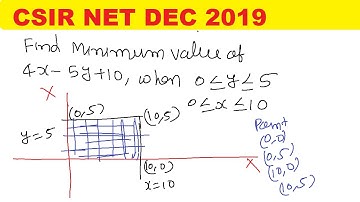 CSIR NET DEC 2019
Find Minimum value of
4x-5y+10, when 0≤y≤5
0≤x≤10
X
(0,5)
(10,5)
y=5
(10,0)
x=10
X
Point
(0,0)
(0,5)
(10,0)
(10,5)